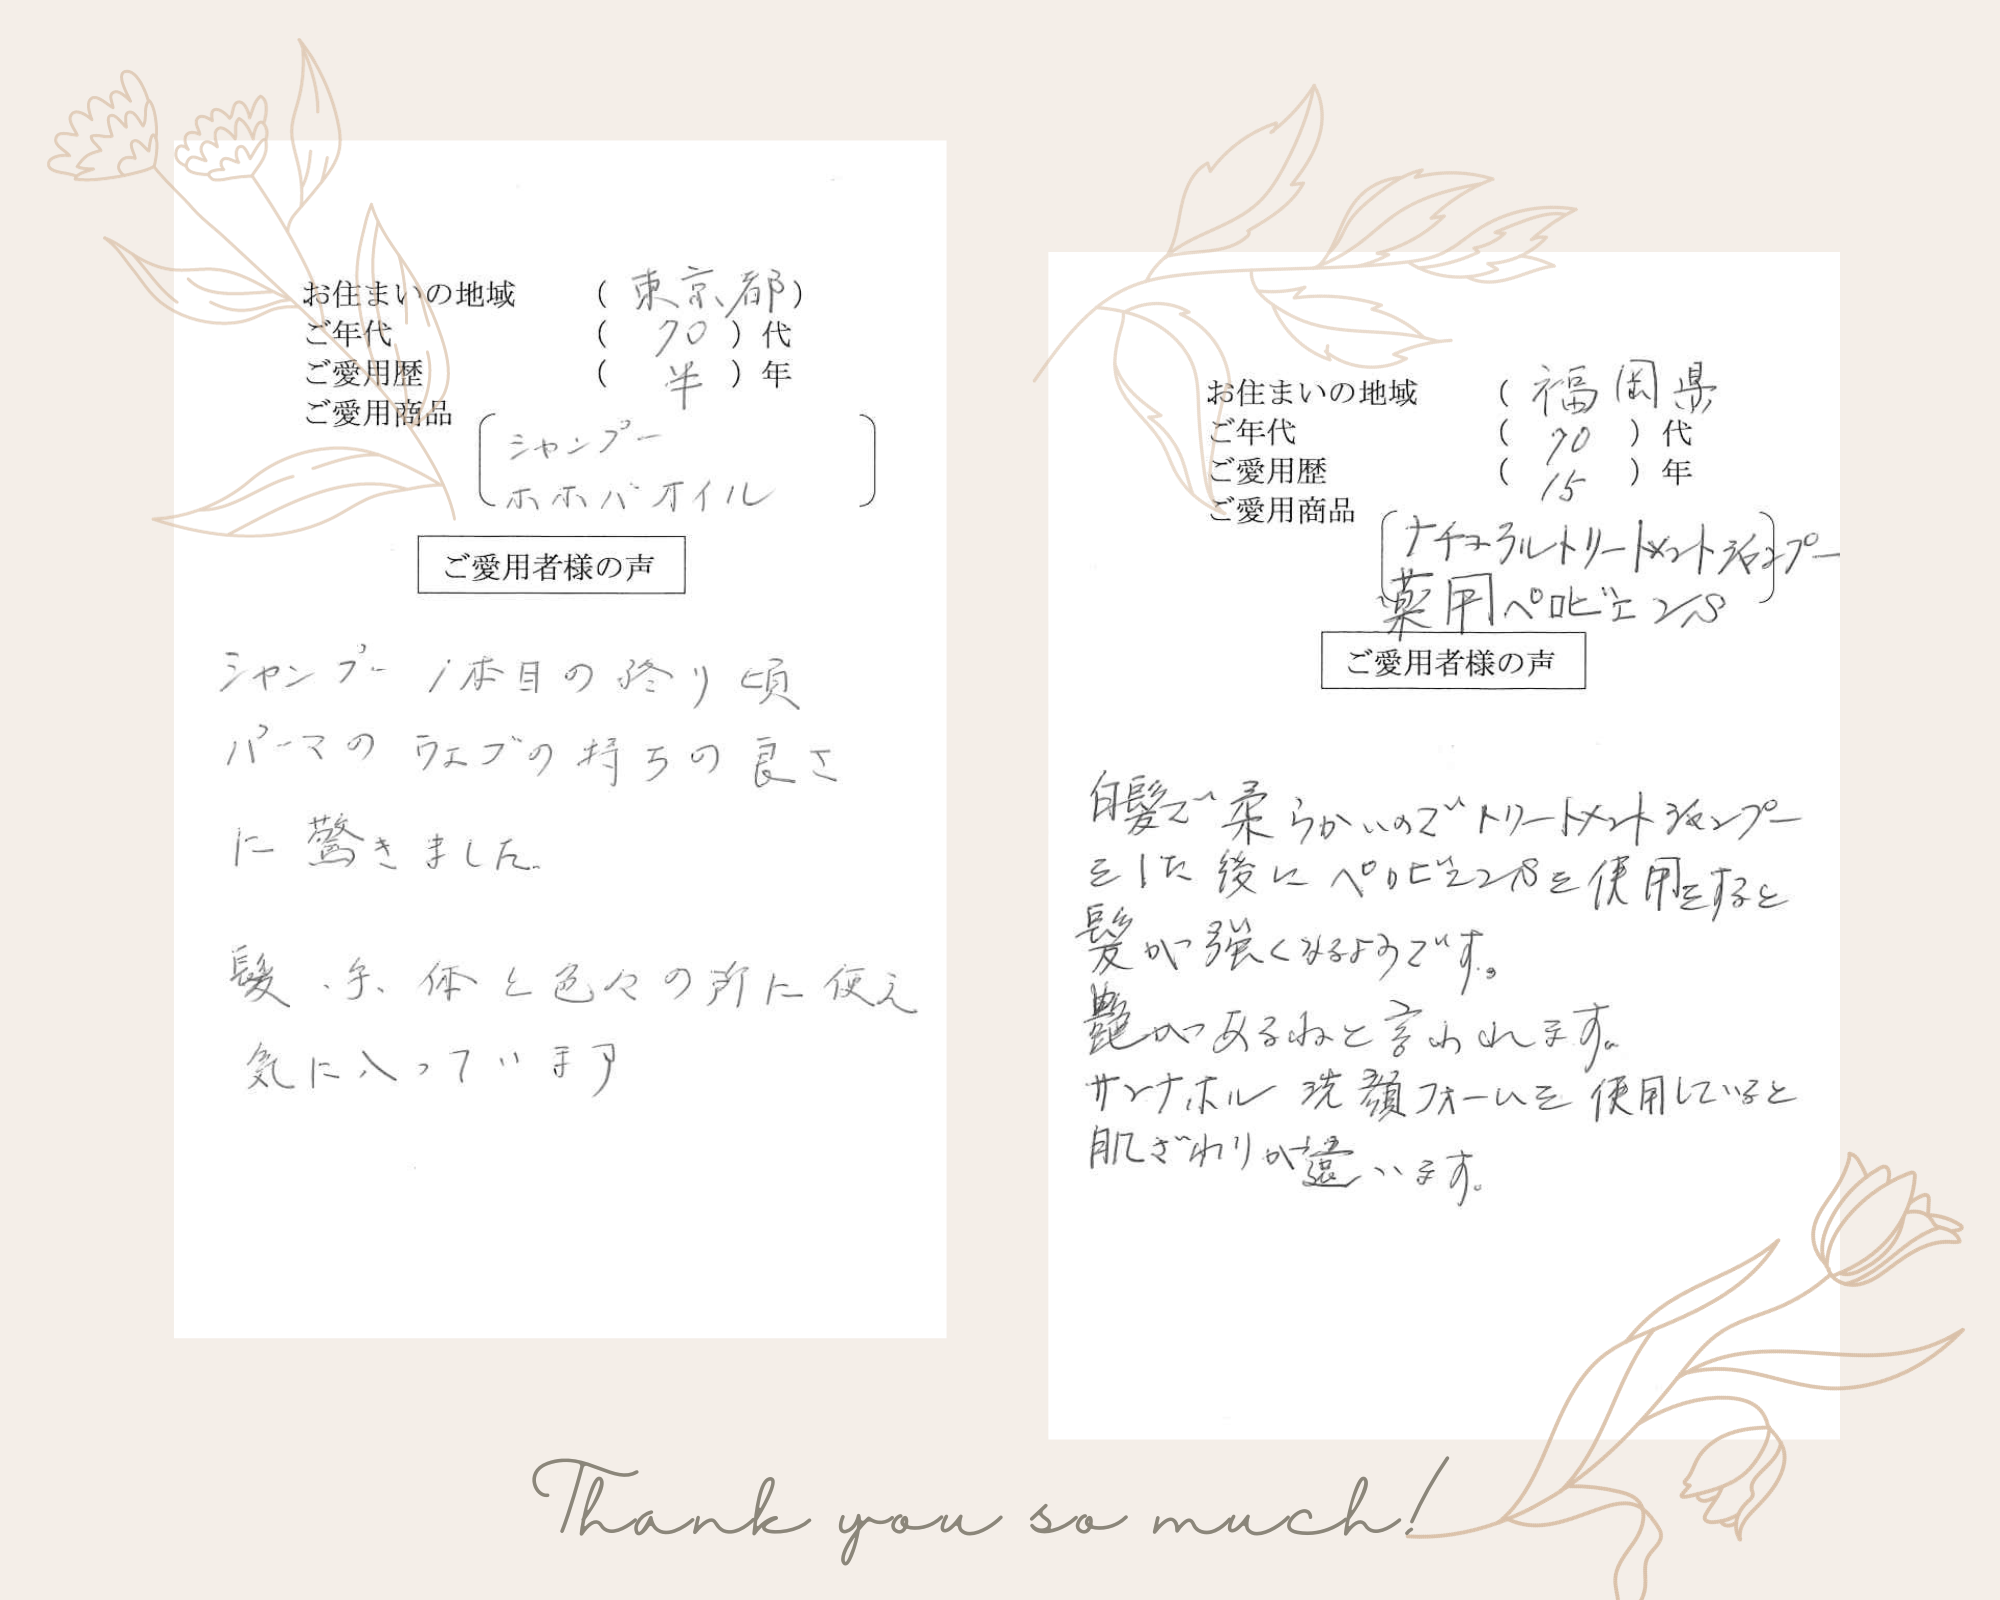 お住まいの地域 ( 東京都 )
ご年代 ( 70 ) 代
ご愛用歴 ( 半 ) 年
ご愛用商品
シャンプー
ホホバオイル
ご愛用者様の声
シャンプー 1本目の終り頃
パーマの ウェブの持ちの良さ
に驚きました。
髪、手、体と色々の所に使え
気に入っています
お住まいの地域 ( 福岡県
ご年代 ( 70 ) 代
ご愛用歴 ( 15 ) 年
ご愛用商品
ナチュラルトリートメントシャンプー
薬用ペロビエンS
ご愛用者様の声
白髪で柔らかいのでトリートメントシャンプー
をした後にペロビエンSを使用をすると
髪が強くなるようです。
艶があるねと言われます。
サンナホル 洗顔フォームを使用していると
肌ざわりが違います。
Thank you so much!